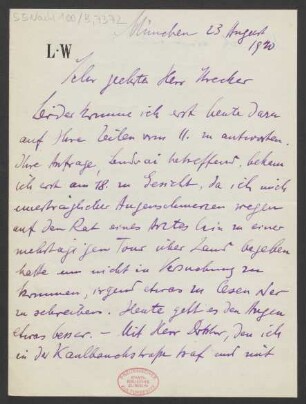 München 23 August
1920
L·W
Sehr geehrter Herr Strecker
leider komme ich erst heute dazu
auf Ihre Zeilen vom 11. zu antworten.
Ihre Anfrage, betreffend, bekam
ich erst am 18. zu Gesicht, da ich mich
unerträglicher Augenschmerzen wegen
auf den Rat eines Arztes hin zu einer
mehrtägigen Tour über Land begeben
hatte um nicht in Versuchung zu
kommen, irgend etwas zu lesen oder
zu schreiben. Heute geht es den Augen
etwas besser. – Mit Herr, den ich
in der Kaulbachstraße traf und mit